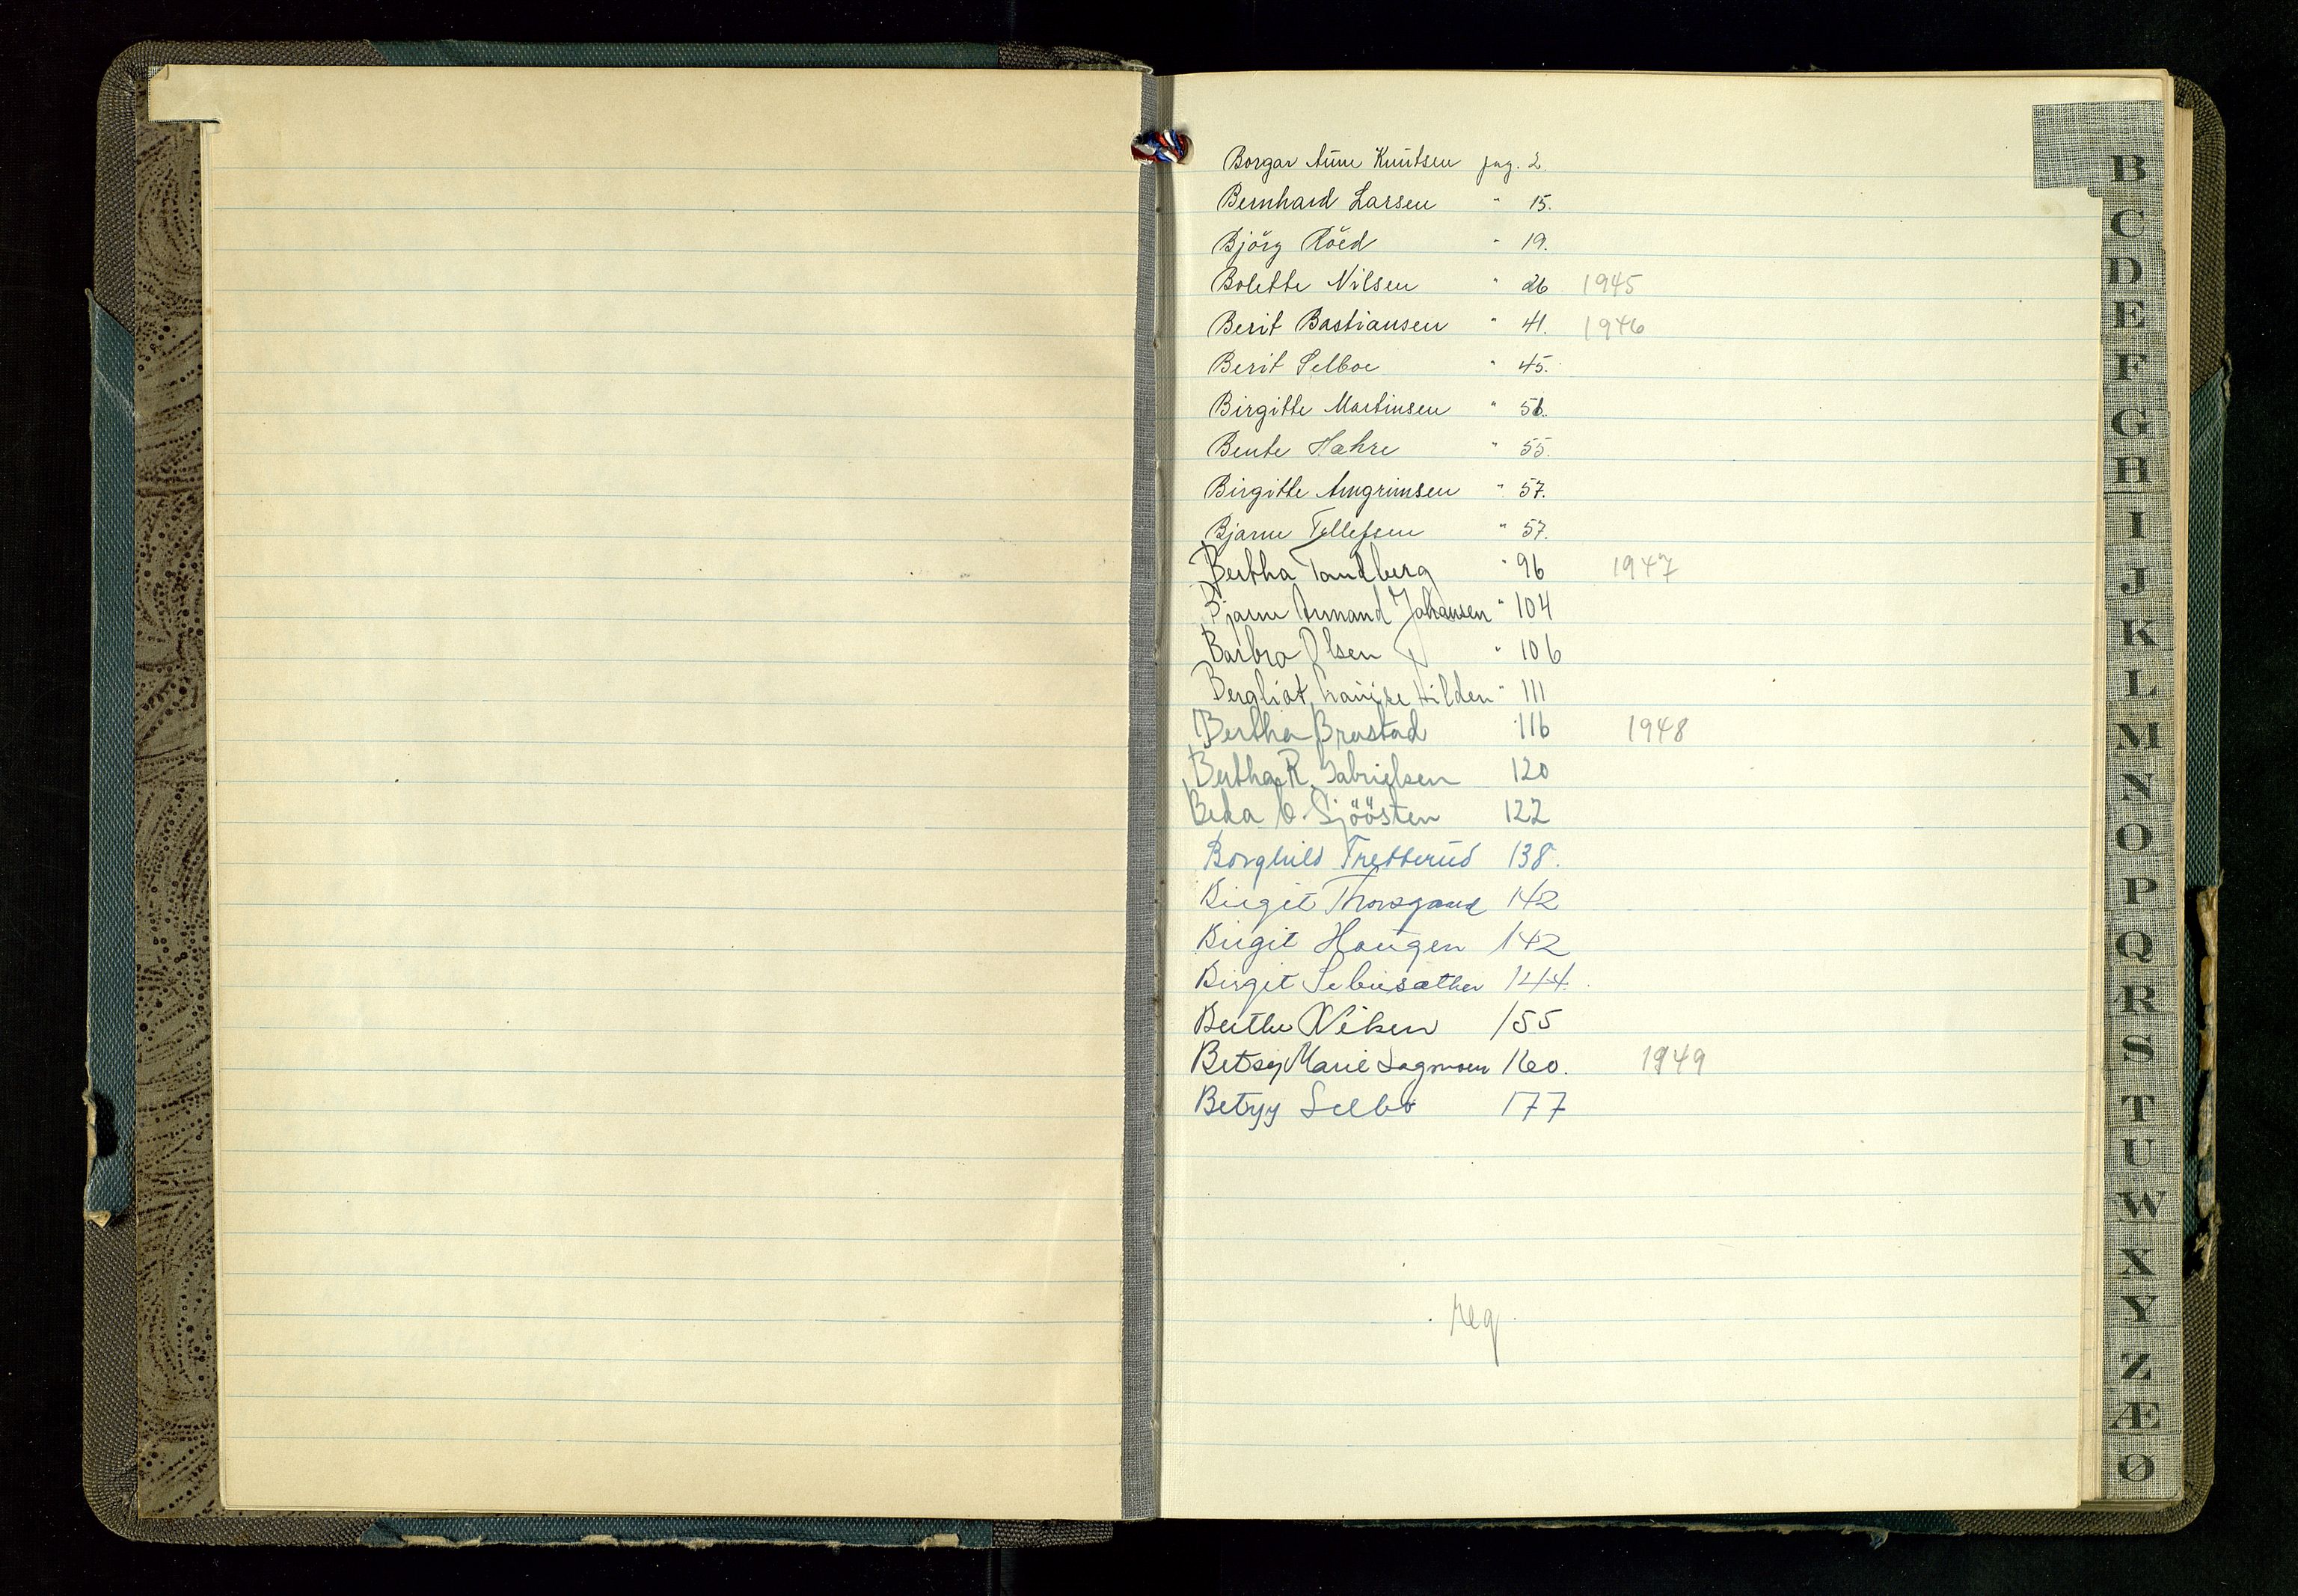 Borgar Aune Knutsen pag. 2.
Bernhard Larsen " 15.
Bjørg Röed " 19.
Bolette Nilsen " 26 1945
Berit Bastiansen " 41. 1946
Berit Selboe " 45.
Birgitte Martinsen " 56.
Bente Hahre " 55.
Birgitte Arngrimsen " 57.
Bjarne Tellefsen " 57.
Bertha Tandberg " 96 1947
Bjarne Armand Johansen " 104
Barbra Olsen " 106
Bergliot Hilden " 111
Bertha Brastad 116 1948
Bertha R. Gabrielsen 120
Beda O. Sjöösten 122
Borghild Tretterud 138.
Birgit Thorsgaard 142
Birgit Haugen 142
Birgit 144.
Berthe Viken 155
Betsy Marie Lagmoen 160. 1949
Betzy Selbo 177
reg.
B
C
D
E
F
G
H
I
J
K
L
M
N
O
P
Q
R
S
T
U
W
X
Y
Z
Æ
Ø